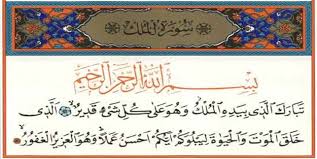 سُورَةُ الْمُلْكِ
بِسْمِ اللَّهِ الرَّحْمَٰنِ الرَّحِيمِ
تَبَٰرَكَ الَّذِي بِيَدِهِ الْمُلْكُ وَهُوَ عَلَىٰ كُلِّ شَيْءٍ قَدِيرٌ ١ الَّذِي
خَلَقَ الْمَوْتَ وَالْحَيَوٰةَ لِيَبْلُوَكُمْ أَيُّكُمْ أَحْسَنُ عَمَلًا وَهُوَ الْعَزِيزُ الْغَفُورُ